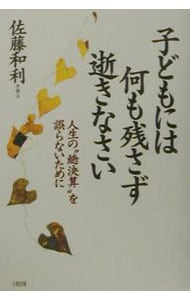 子どもには
何も残さず
逝きなさい
佐藤和利
人生の“総決算”を
誤らないために